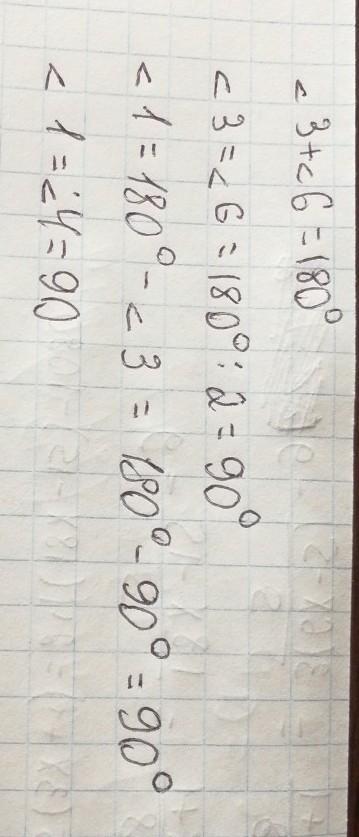 ∠3+∠6=180°
∠3=∠6=180°:2=90°
∠1=180°-∠3=180°-90°=90°
∠1=∠4=90